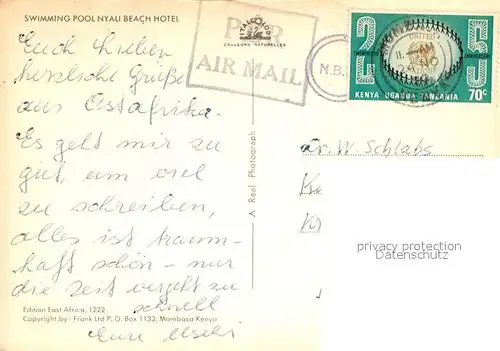 SWIMMING POOL NYALI BEACH HOTEL
Euch Lieben
herzliche Grüße
aus Ostafrika.
Es geht mir zu
gut, um viel
zu schreiben,
alles ist traum-
haft schön – nur
die Zeit vergeht zu
schnell
Eure
Edition East Africa, 1222
Copyright by: Frank Ltd P. O. Box 1133, Mombasa Kenya
A Real Photograph
COULEURS NATURELLES
PAR
AIR MAIL
N.B.
25
UNITED
KENYA UGANDA TANZANIA 70c
Dr. W. Schlabs
privacy protection
Datenschutz